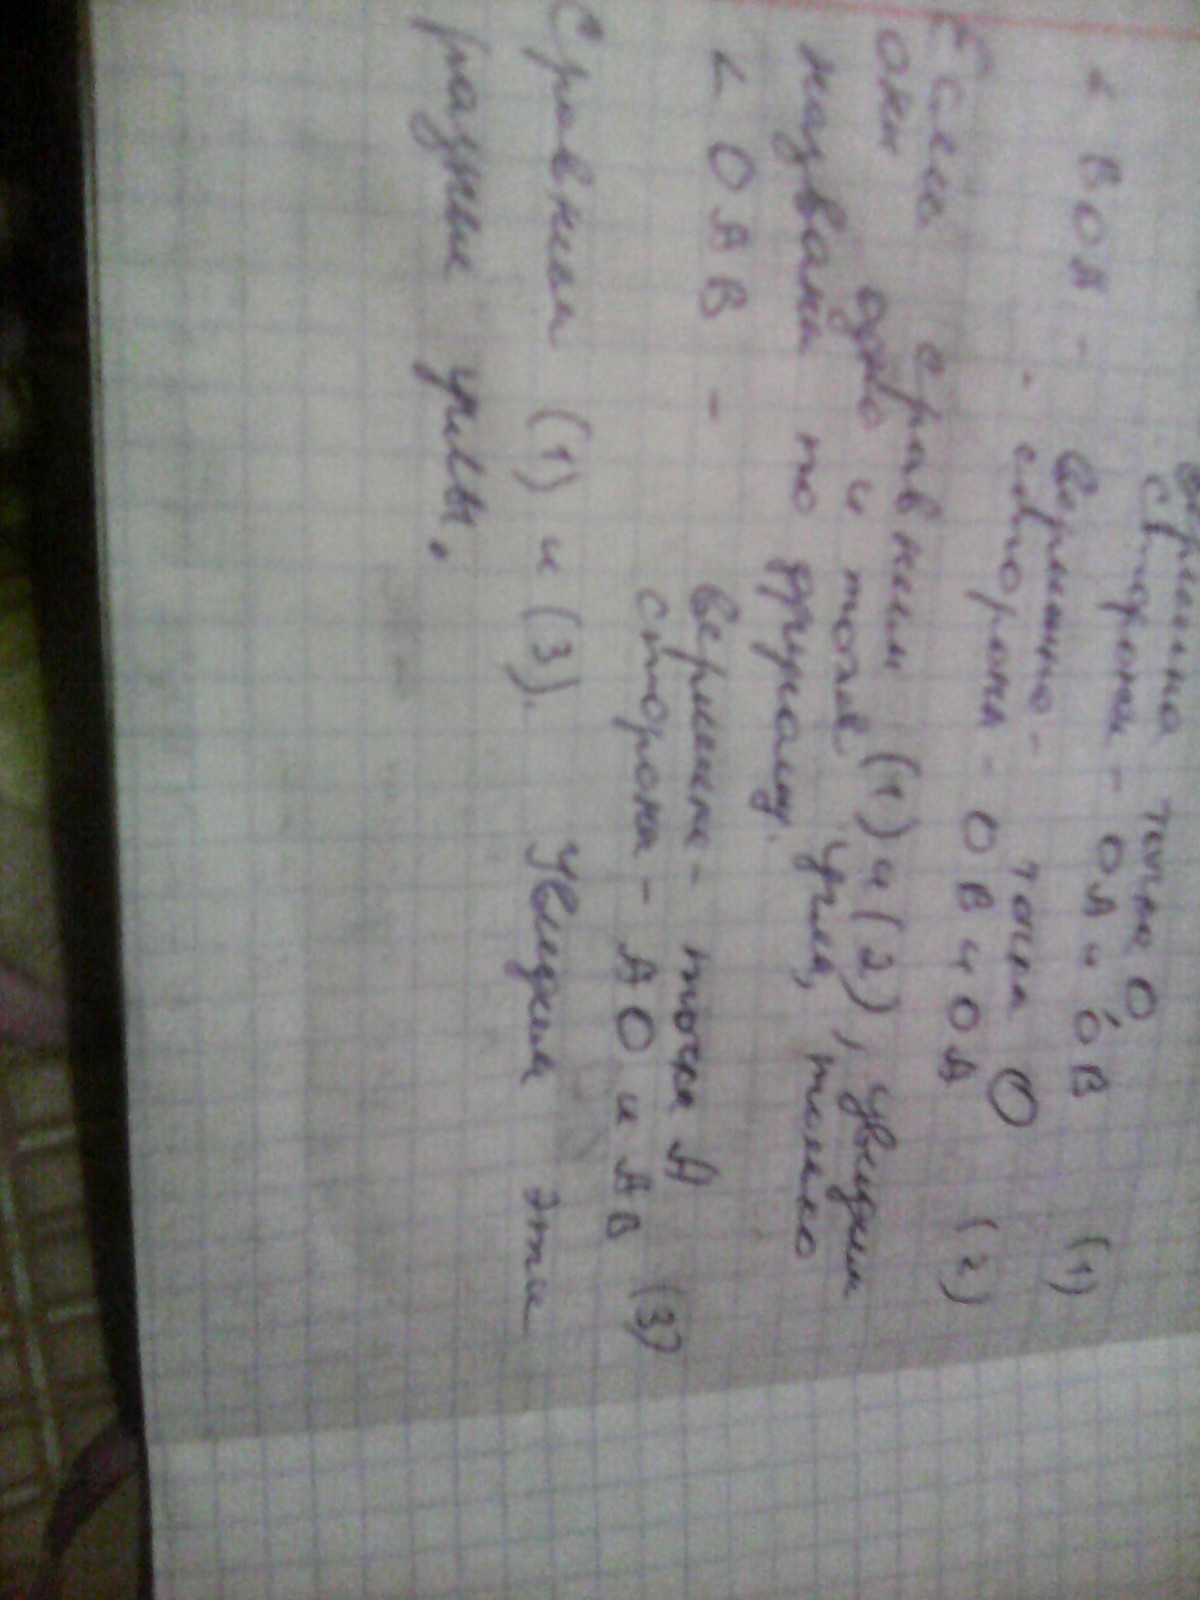 вершина точка О
стороны - ОА и ОВ (1)
∠ ВОА - вершина - точка О
стороны - ОВ и ОА (2)
Если сравним (1) и (2), увидим
они одно и тоже угла, только
названы по другому.
∠ ОАВ - вершина - точка А
стороны - АО и АВ (3)
Сравним (1) и (3). Увидим эти
разные углы.